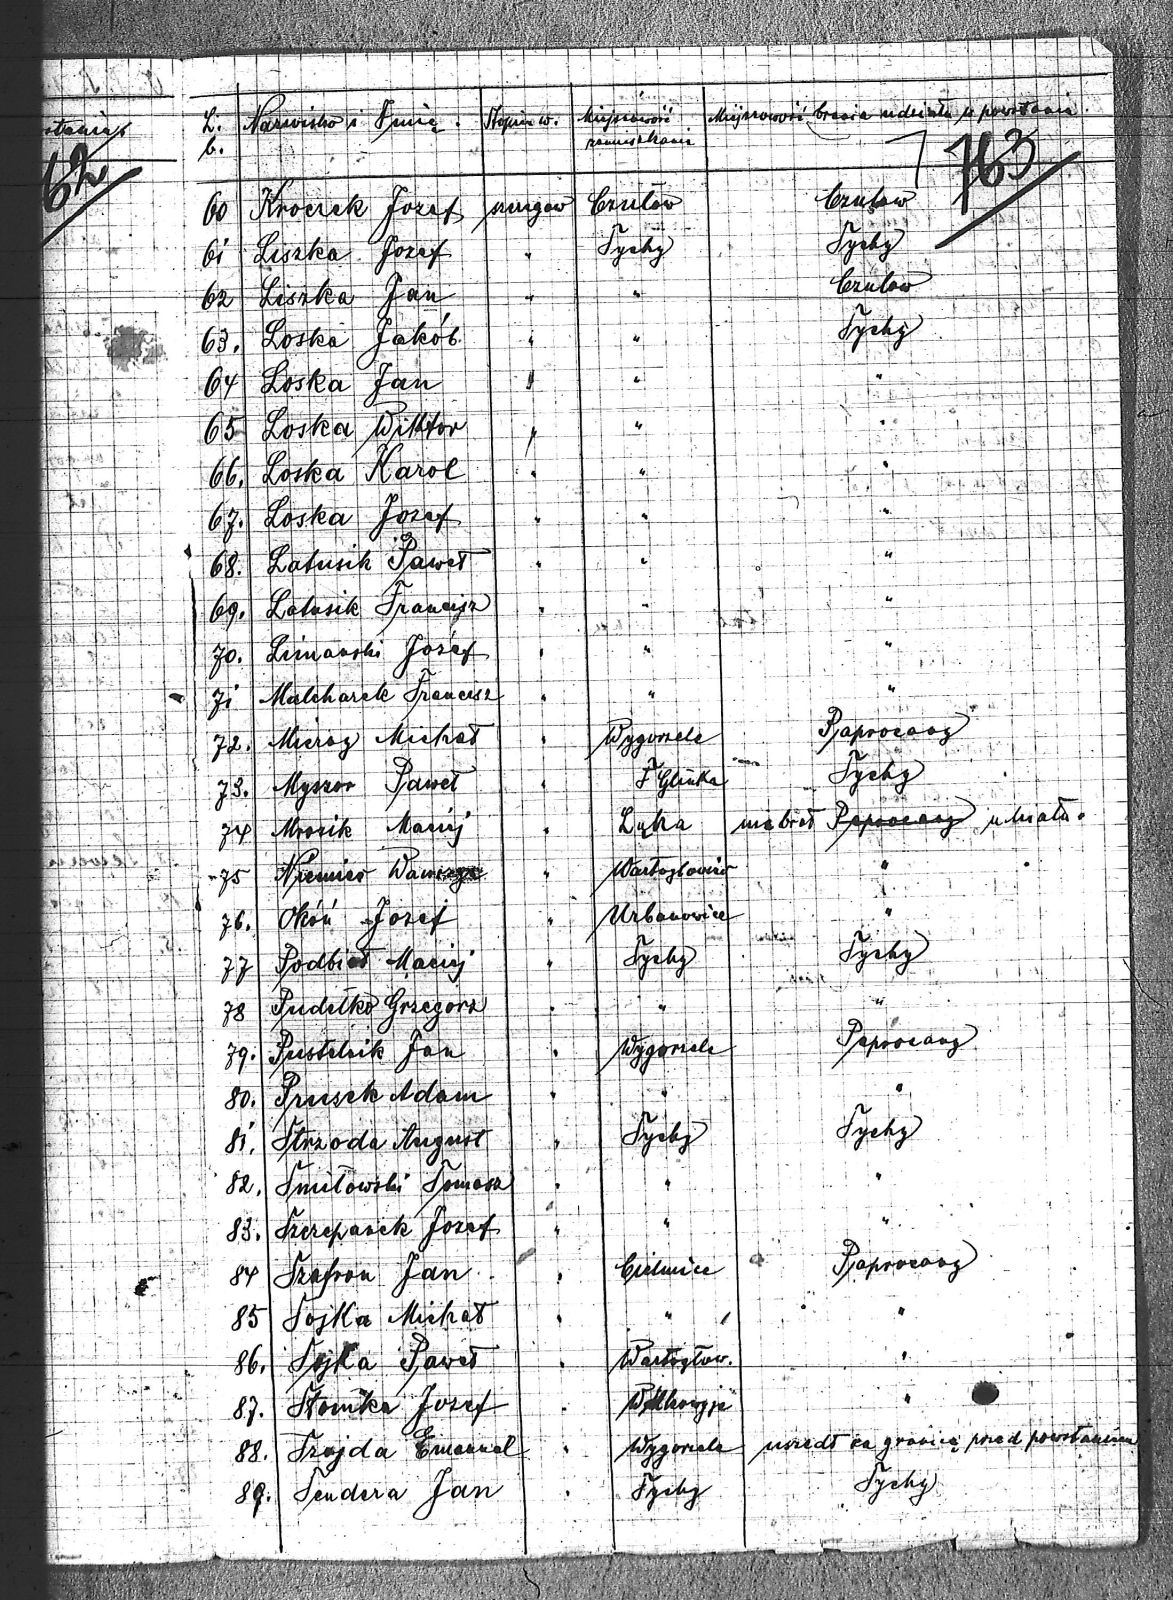 L. b. Nazwisko i Imię. Stopień w. Miejscowość zamieszkania Miejscowość brania udziału w powstaniu.
62
763
60 Kroczek Józef szeregow Czułów Czułów
61 Liszka Józef " Tychy Tychy
62 Liszka Jan " " Czułów
63. Loska Jakób " " Tychy
64 Loska Jan " " "
65 Loska Wiktor " " "
66. Loska Karol " " "
67. Loska Józef " " "
68. Latusik Paweł " " "
69. Latusik Francisz " " "
70. Limanski Józef " " "
71 Malcharek Francisz " " "
72. Mierzy Michał " Wygorzele Paprocany
73. Myszor Paweł " F Glinka Tychy
74 Mrozik Maciej " Łąka nie brał Paprocany udziału.
75 Niemiec Wawrzyn " Wartogłowiec "
76. Okóń Józef " Urbanowice "
77 Podbioł Maciej " Tychy Tychy
78 Pudełko Grzegorz " " "
79. Pustelnik Jan " Wygorzele Paprocany
80. Prusek Adam " " "
81. Strzoda August " Tychy Tychy
82. Smiłowski Tomasz " " "
83. Szczepanek Józef " " "
84 Szafron Jan " Cielmice Paprocany
85 Sojka Michał " " "
86. Sojka Paweł " Wartogłow. "
87. Słomka Józef " Wilkowyje "
88. Szajda Emanuel " Wygorzele uszedł za granicę przed powstaniem
89. Sendera Jan " Tychy Tychy